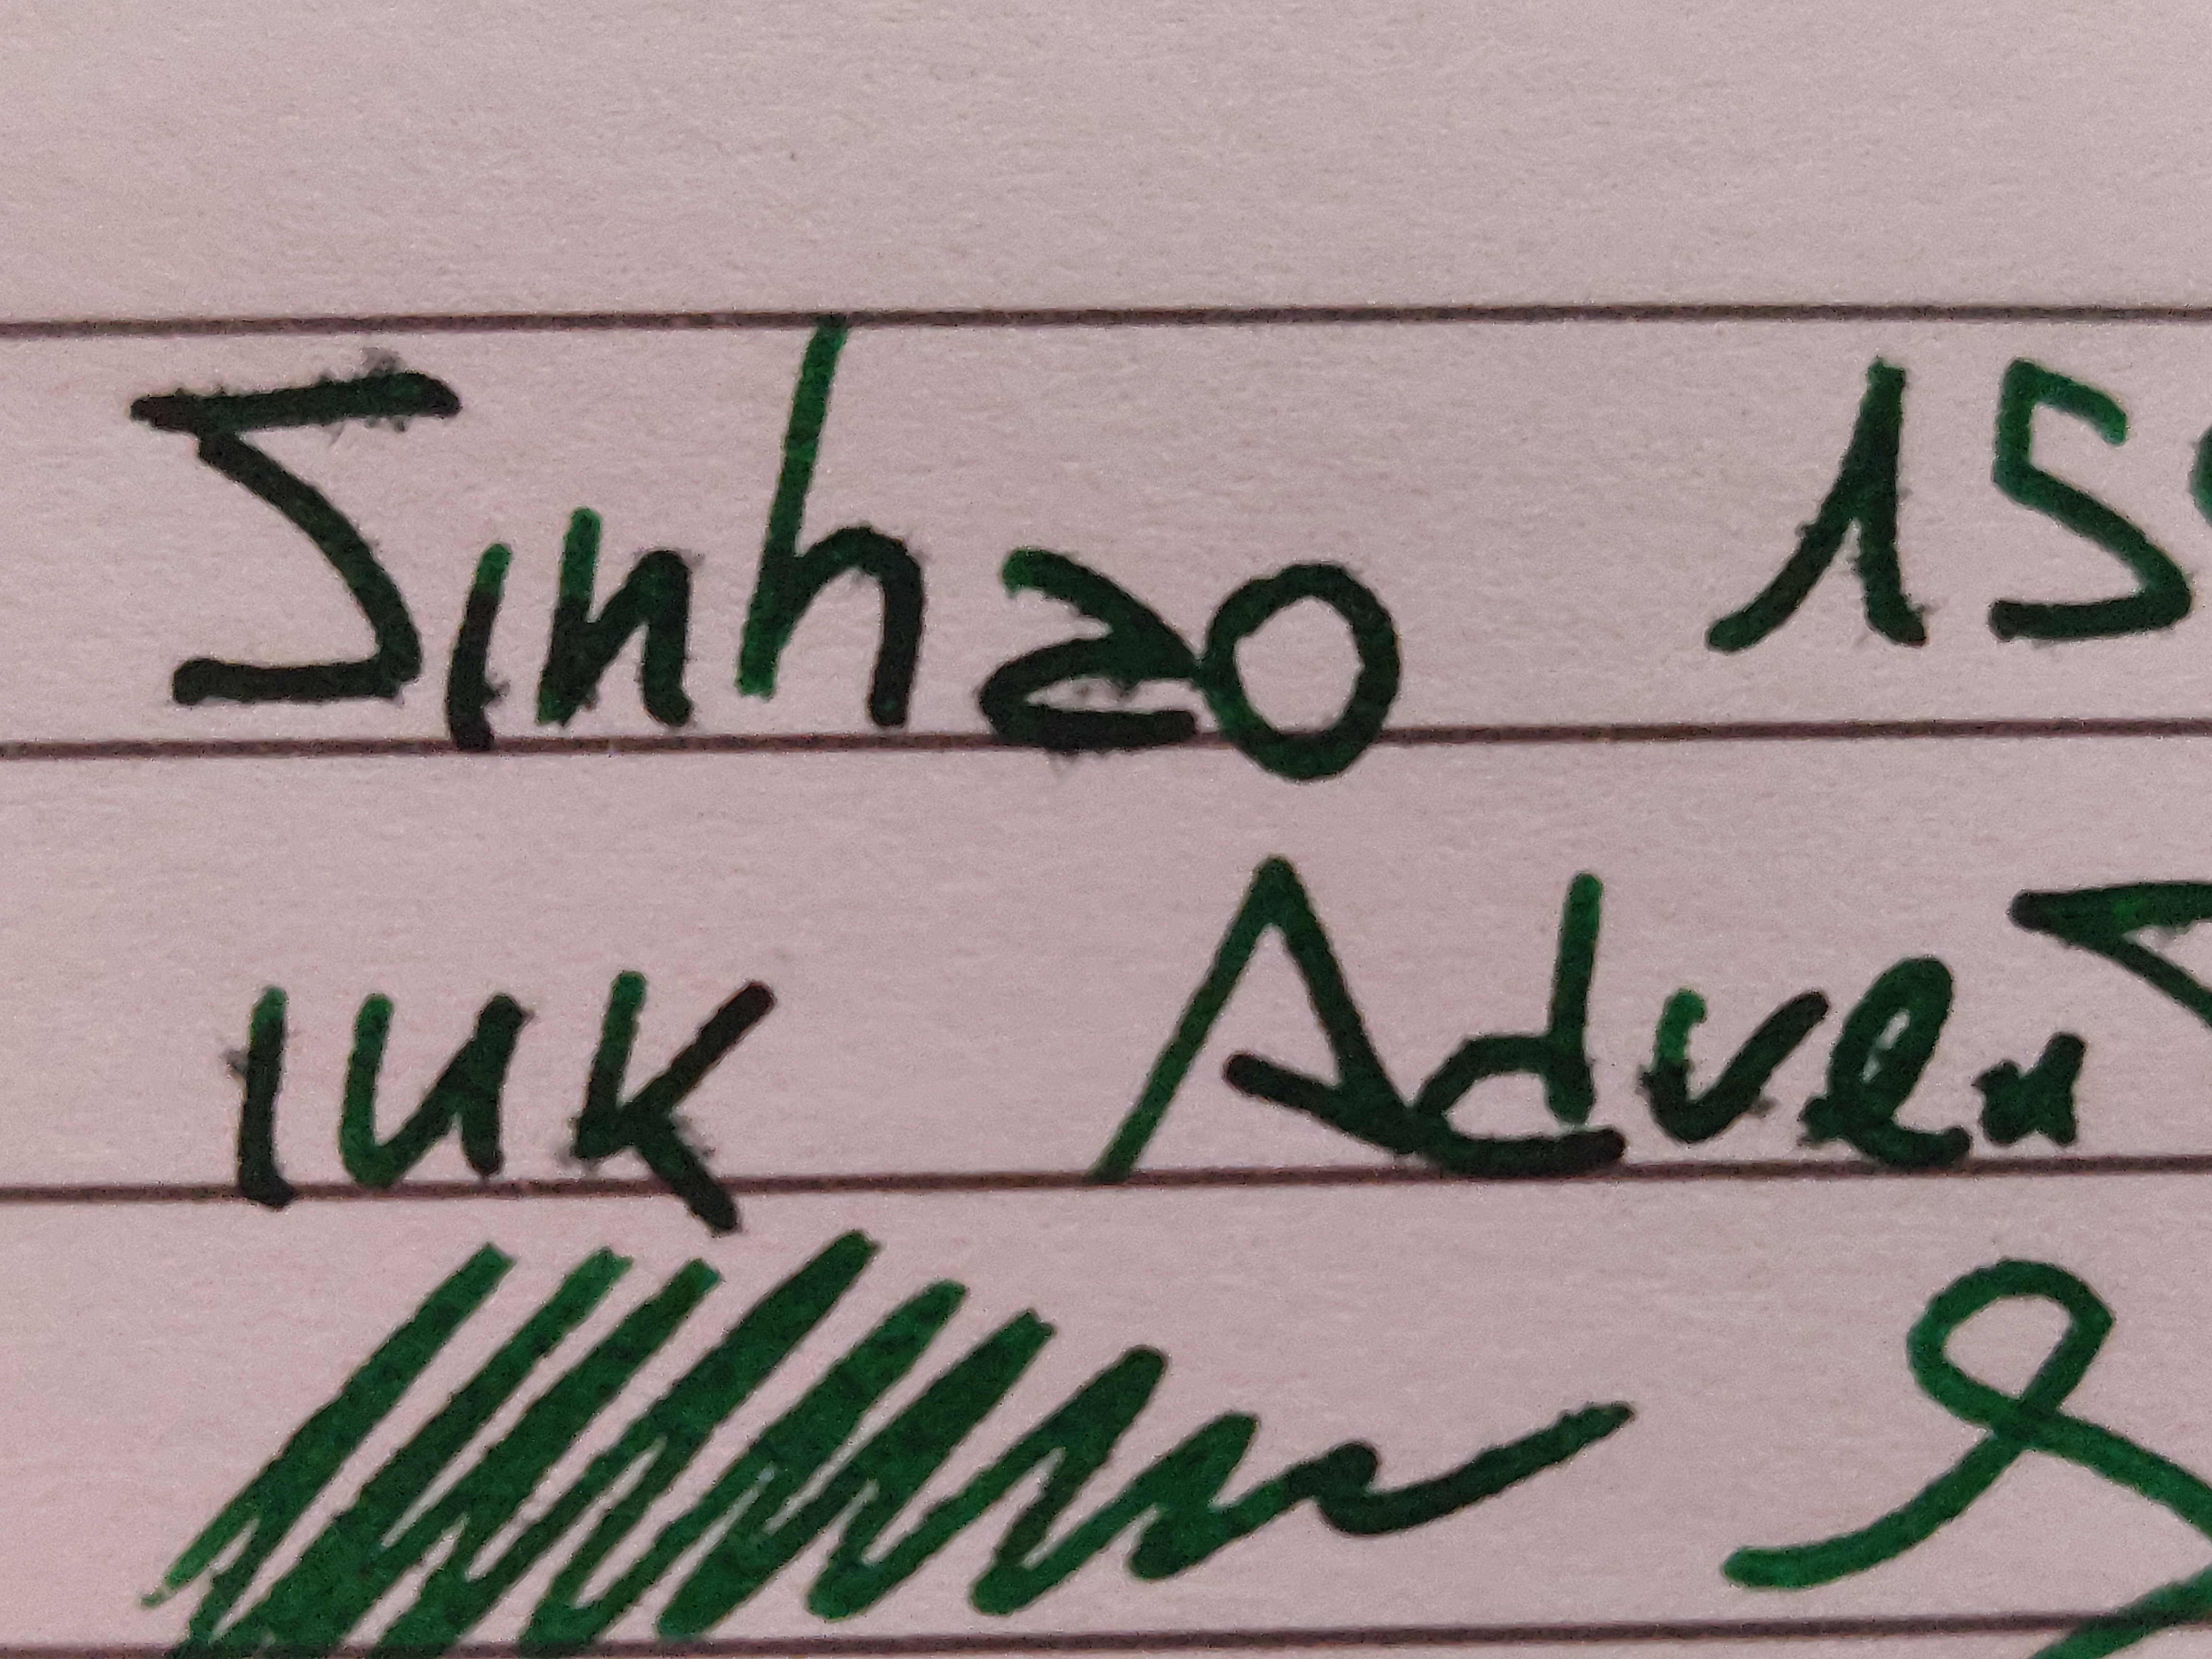 Sinhao 15
ink Advent